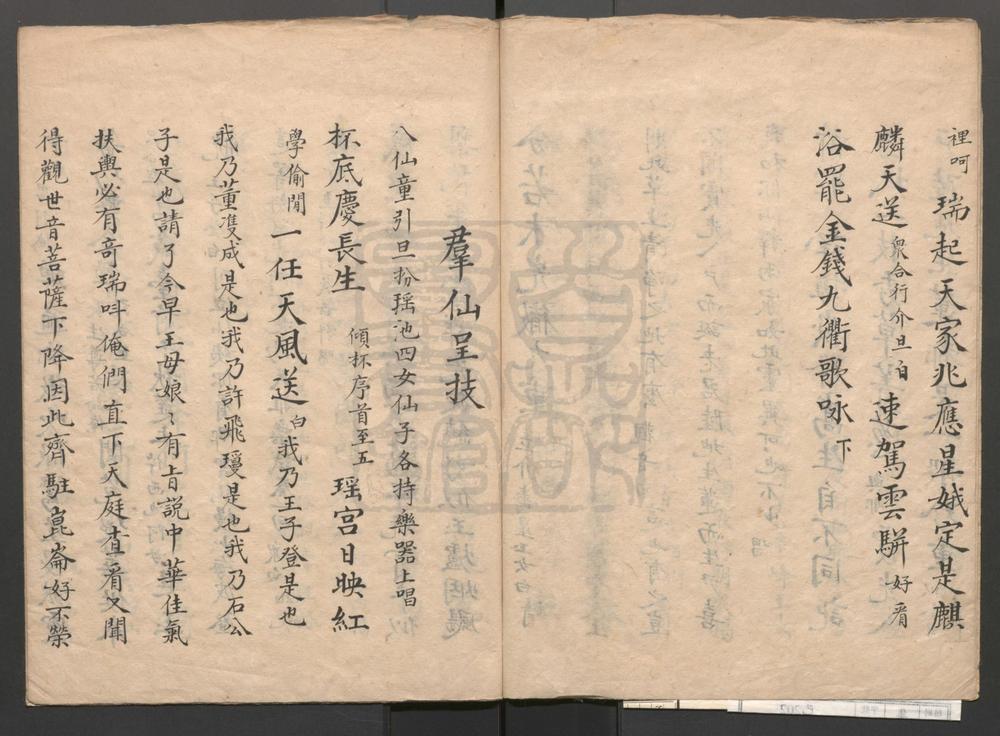 裡呵 瑞起天家兆應星娥定是麒
麟天送 衆合行介旦白 速駕雲駢 好看
浴罷金錢九衢歌咏 下
羣仙呈技
八仙童引旦扮瑶池四女仙子各持樂器上唱
杯底慶長生 傾杯序首至五 瑶宮日映紅
學偷閒一任天風送 白 我乃王子登是也
我乃董雙成是也我乃許飛瓊是也我乃石公
子是也請了今早王母娘〻有旨説中華佳氣
扶輿必有竒瑞呌俺們直下天庭查看又聞
得觀世音菩薩下降因此齊駐崑崙好不榮